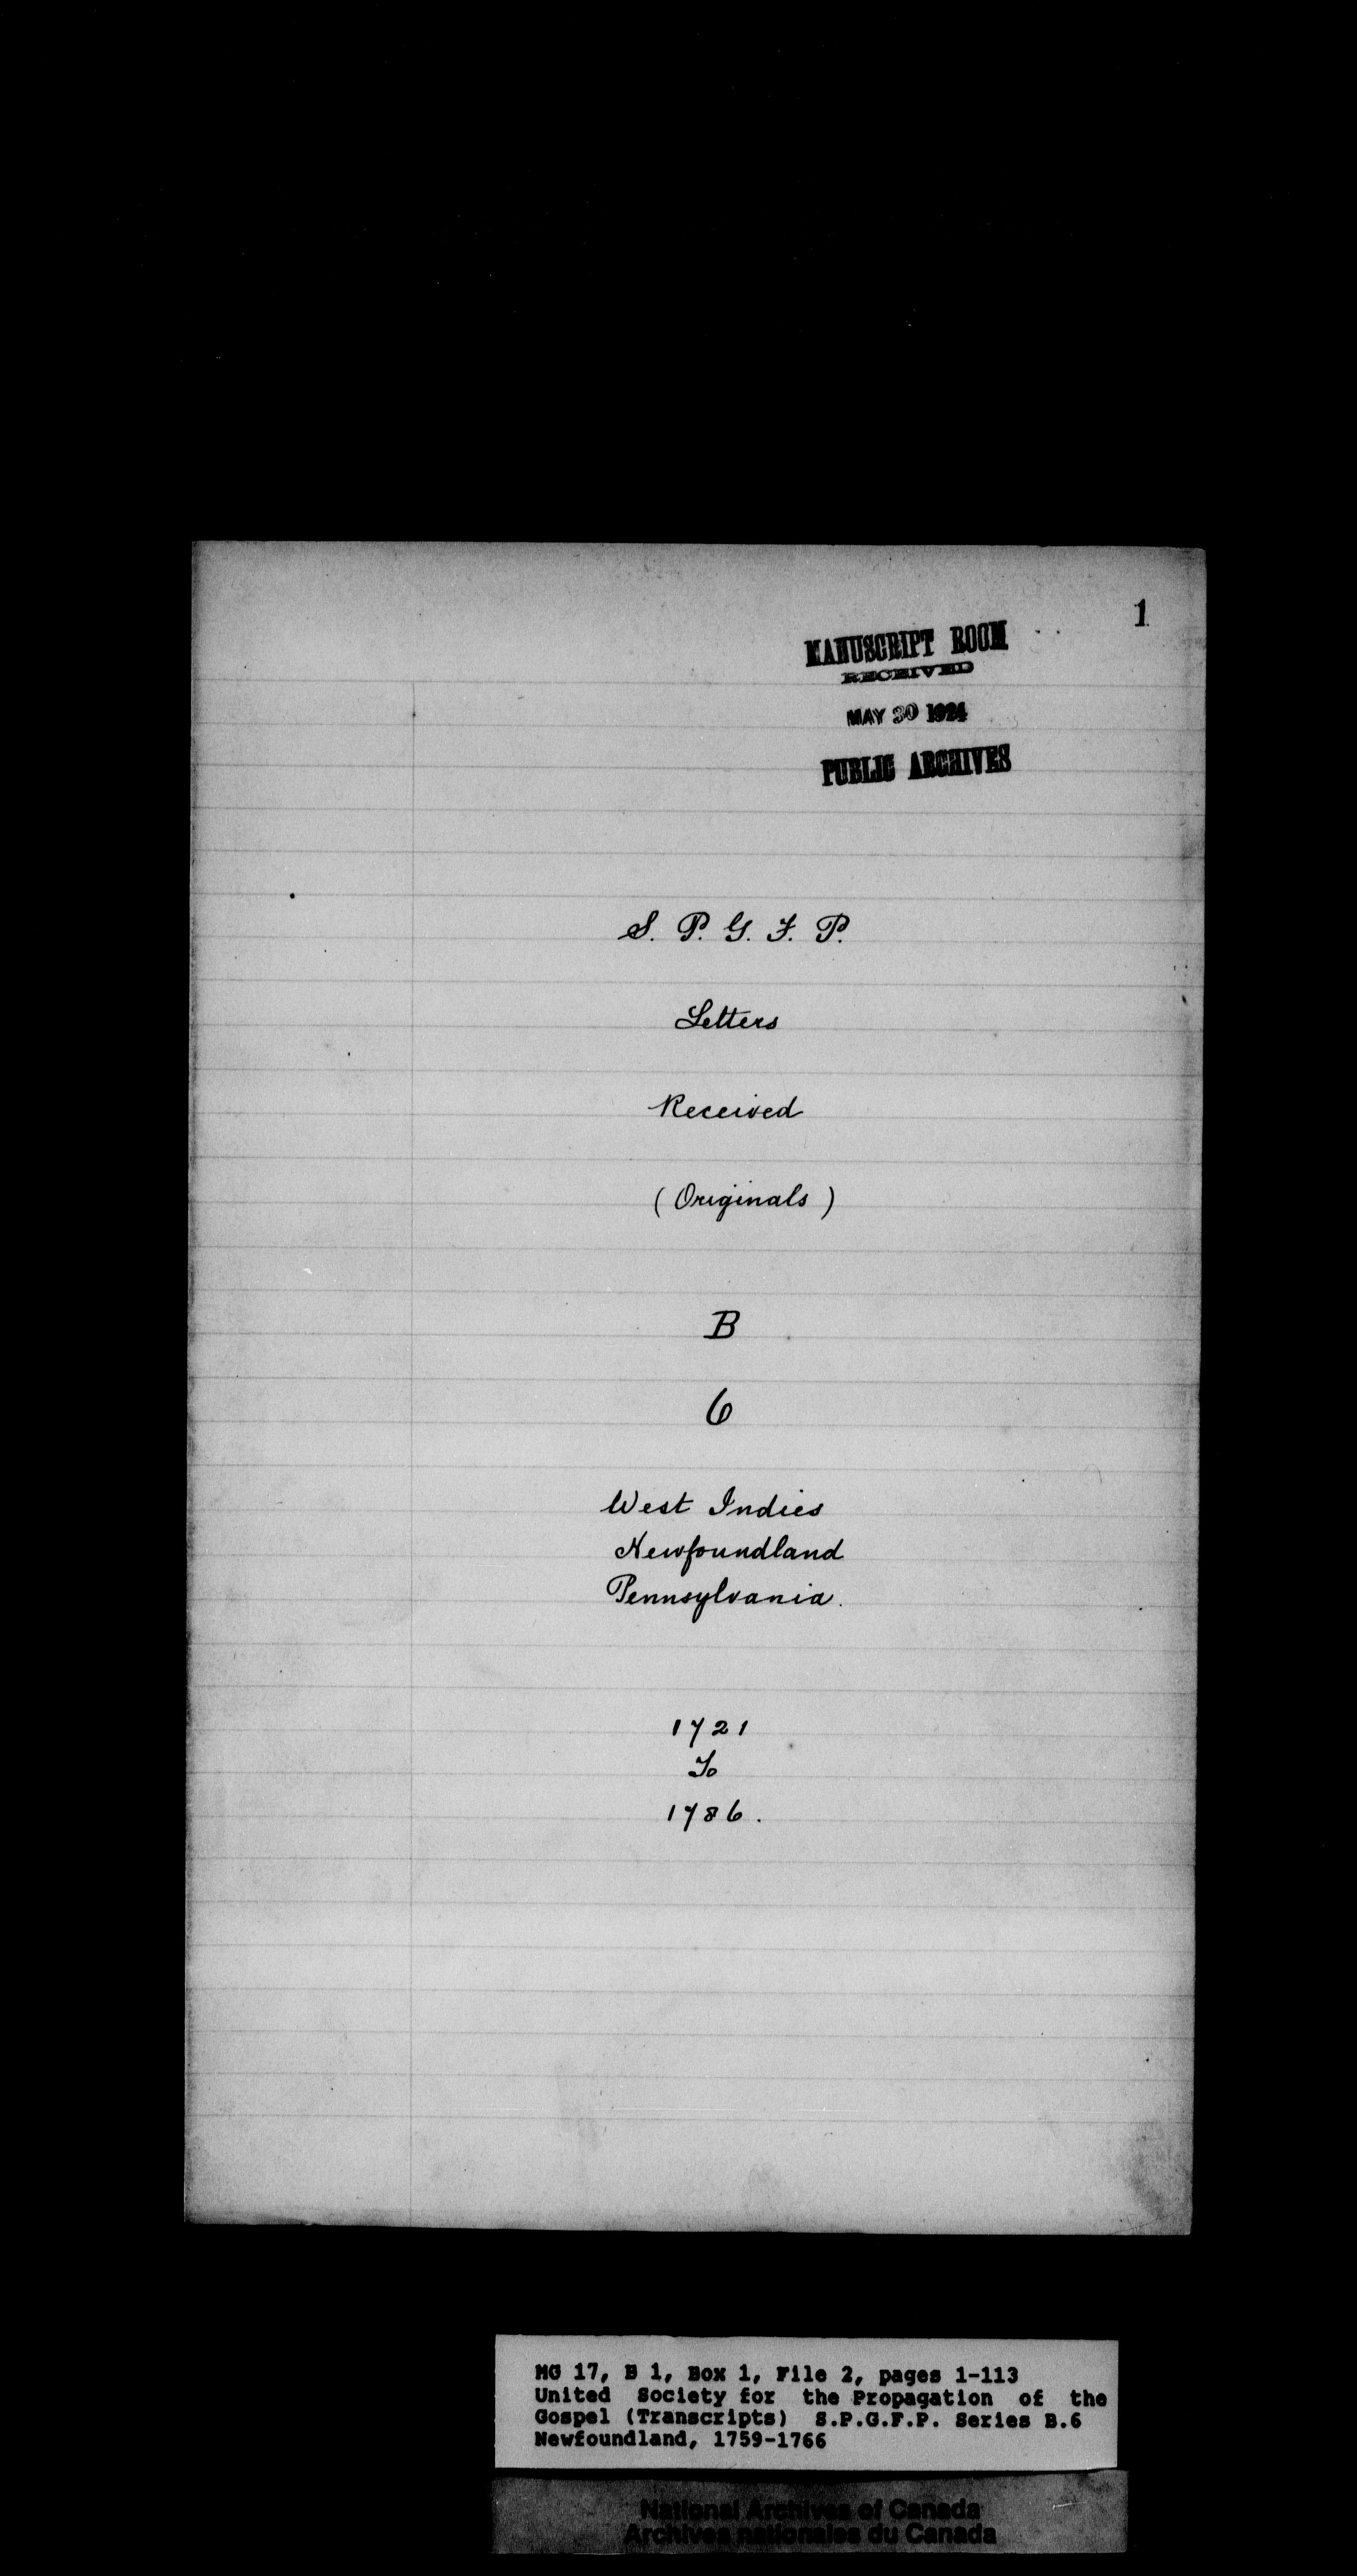 1
MANUSCRIPT ROOM
RECEIVED
MAY 30 1924
PUBLIC ARCHIVES
S. P. G. F. P.
Letters
Received
( Originals )
B
6
West Indies
Newfoundland
Pennsylvania.
1721
To
1786.
MG 17, B 1, Box 1, File 2, pages 1-113
United Society for the Propagation of the
Gospel (Transcripts) S.P.G.F.P. Series B.6
Newfoundland, 1759-1766
National Archives of Canada
Archives nationales du Canada